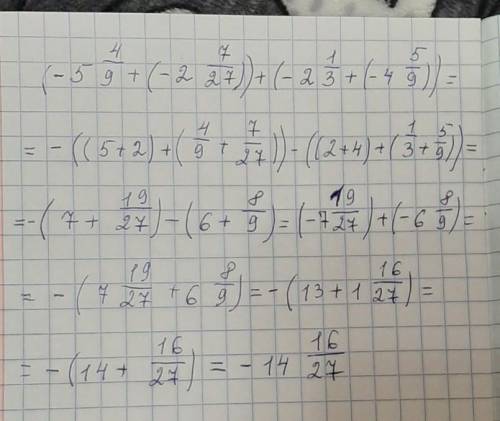 (-5 4/9 + (-2 7/27)) + (-2 1/3 + (-4 5/9)) =
= -((5+2) + (4/9 + 7/27)) - ((2+4) + (1/3 + 5/9)) =
= -(7 + 19/27) - (6 + 8/9) = (-7 19/27) + (-6 8/9) =
= -(7 19/27 + 6 8/9) = -(13 + 1 16/27) =
= -(14 + 16/27) = -14 16/27